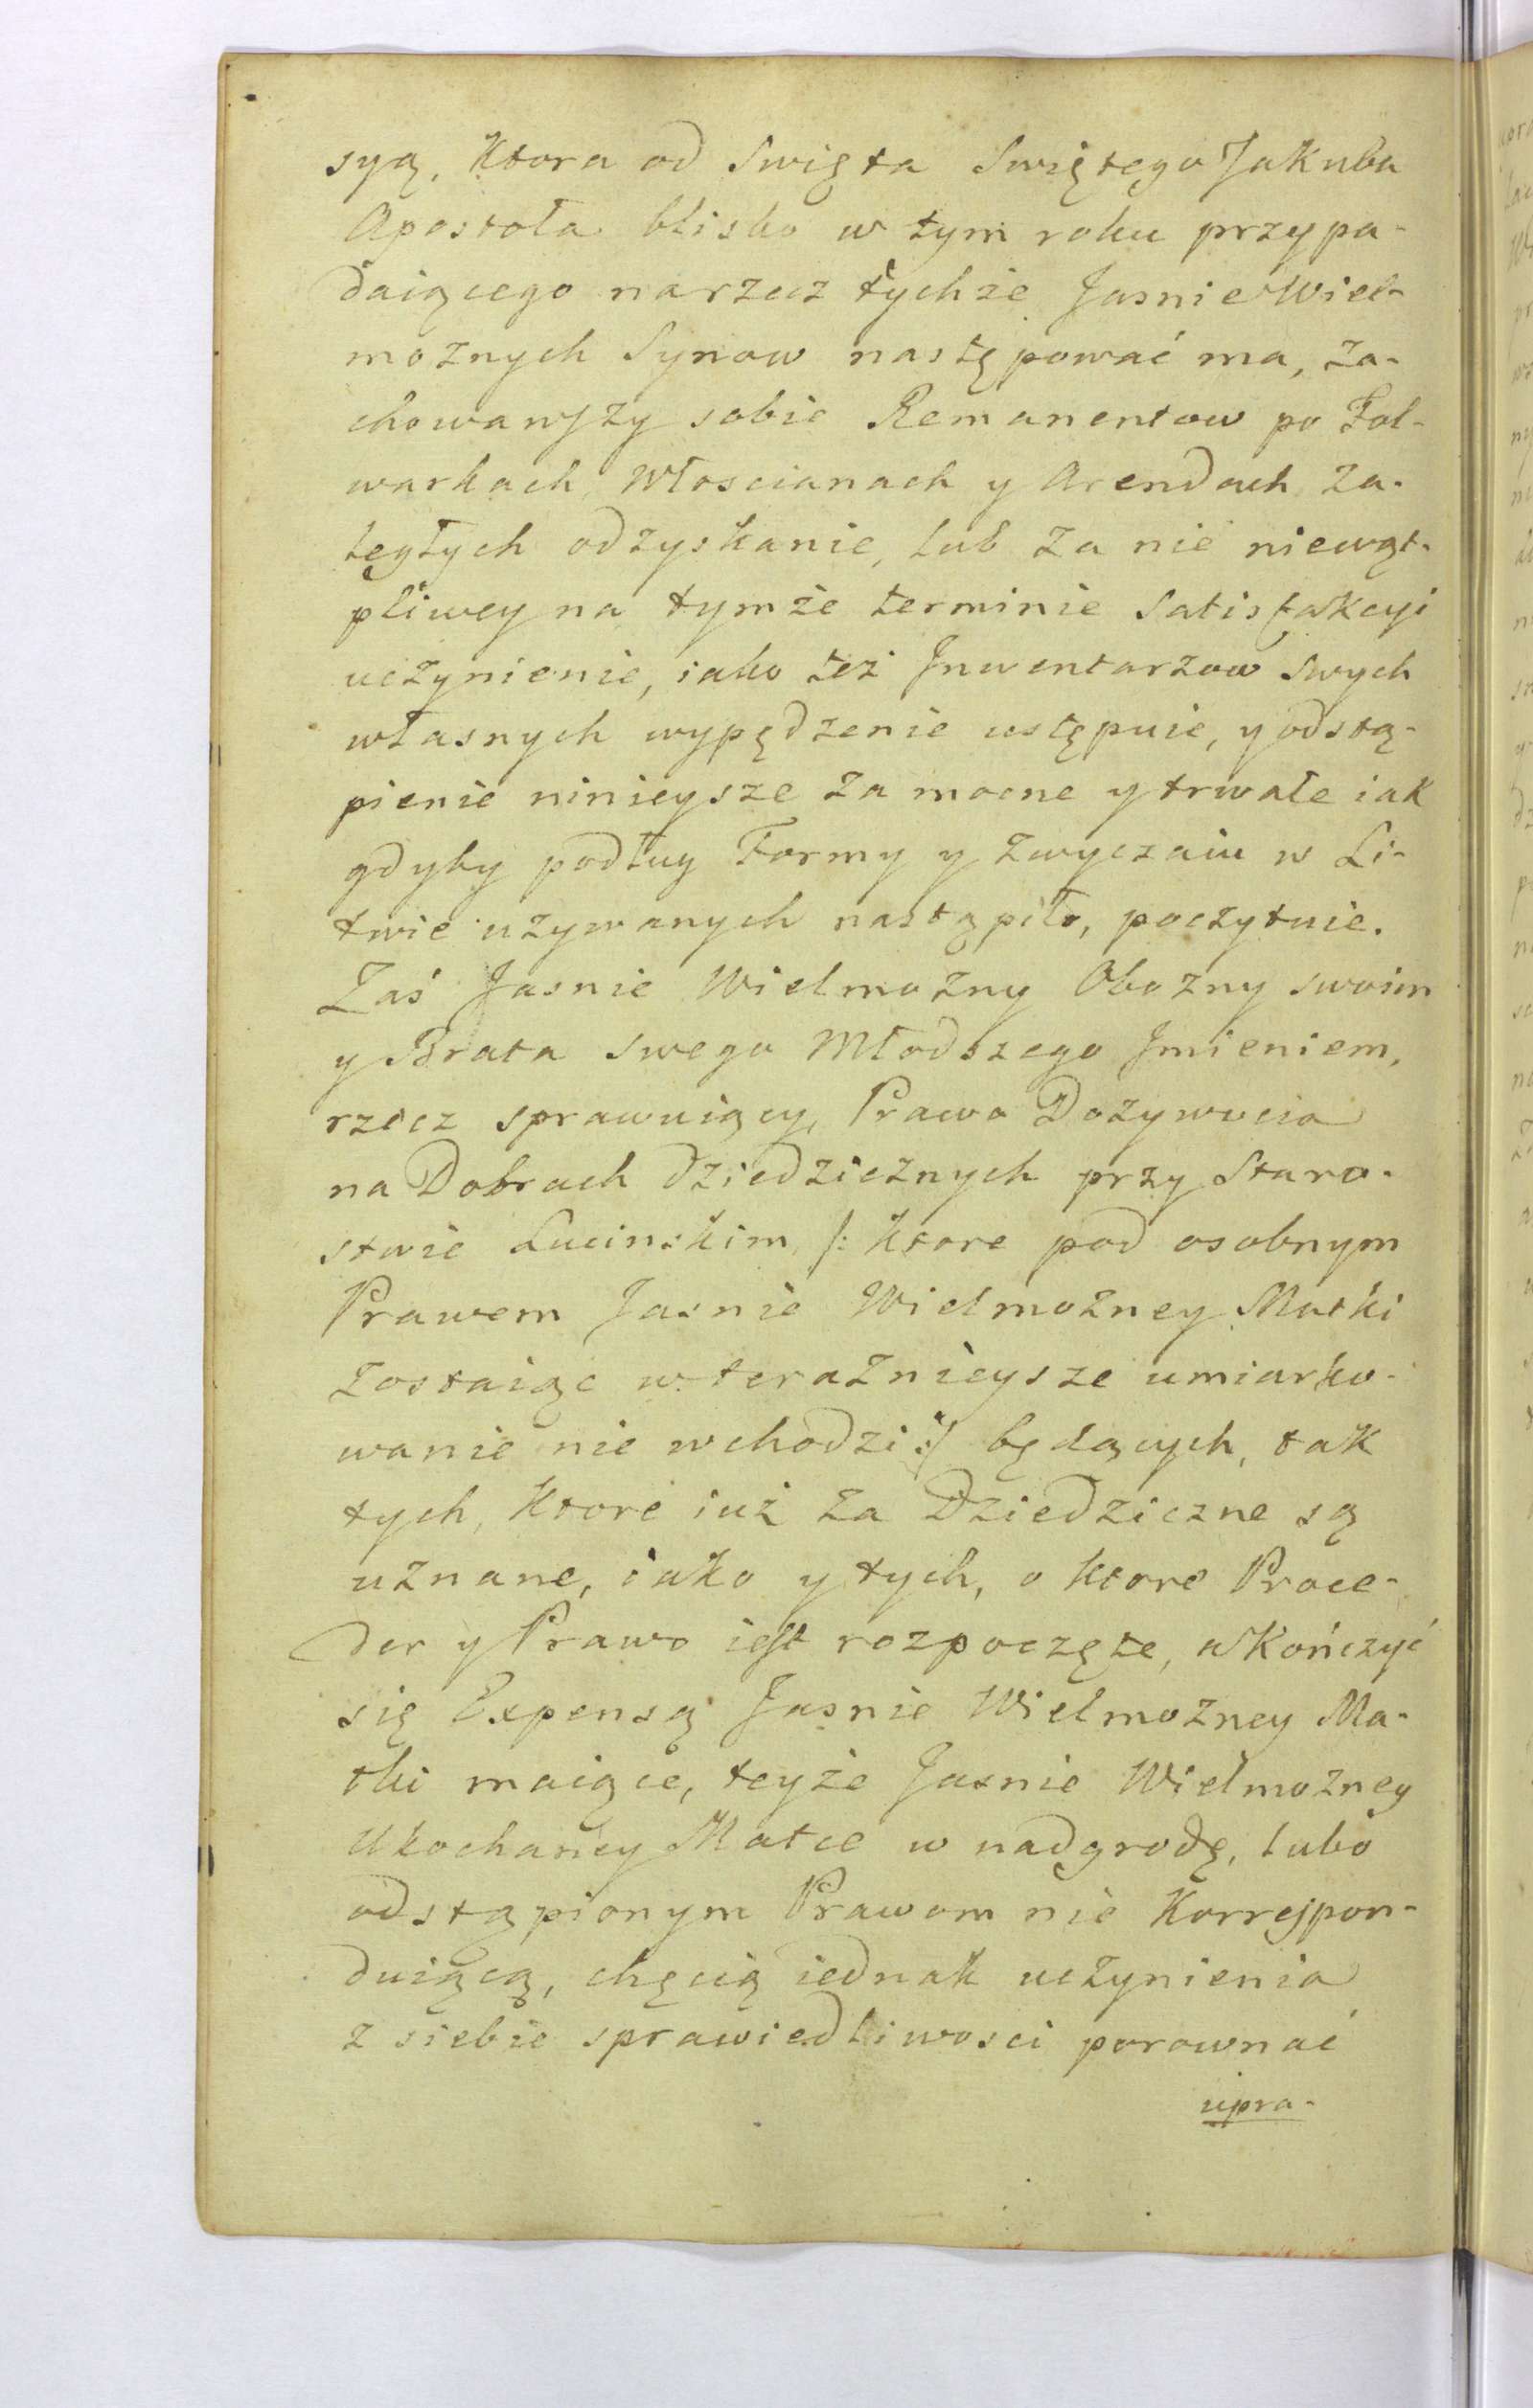 syą, Ktora od Swięta Swiętego Jakuba
Apostoła blisko w tym roku przypa-
daiącego narzecz tychże Jasnie Wiel-
możnych Synow następować ma, za-
chowawszy sobie Remanentow po Fol-
warkach, Włoscianach y Arendach za-
ległych odzyskanie, lub za nie niewąt-
pliwey na tymże terminie Satisfakcyi
uczynienie, iako też Jnwentarzow swych
własnych wypędzenie ustępuie, y odstą-
pienie ninieysze za mocne y trwałe iak
gdyby podług Formy y zwyczaiu w Li-
twie używanych nastąpiło, poczytuie.
Zaś Jasnie Wielmożny Obozny swoim
y Brata swego Młodszego Jmieniem,
rzecz sprawuiący, Prawo Dożywocia
na Dobrach dziedzicznych przy Staro-
stwie Lucinskim, /: ktore pod osobnym
Prawem Jasnie Wielmożney Matki
zostaiąc w teraznieysze umiarko-
wanie nie wchodzi :/ będących, tak
tych, Ktore iuż za Dziedziczne są
uznane, iako y tych, o ktore Proce-
der y Prawo iest rozpoczęte, a Kończyć
się Expensą Jasnie Wielmożney Ma-
tki maiące, teyże Jasnie Wielmożney
Ukochaney Matce w nadgrodę, lubo
odstąpionym Prawom nie Korrespon-
duiącą, chęcią iednak uczynienia
z siebie sprawiedliwosci porownać
upra-